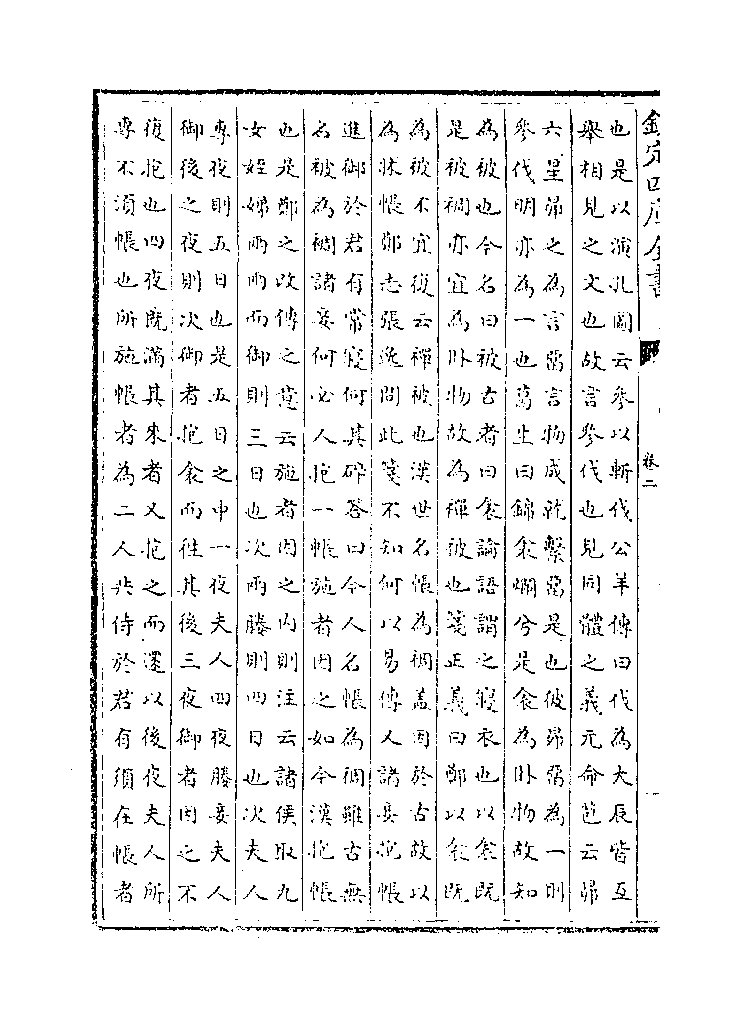 欽定四庫全書
卷二
也是以演孔圖云參以斬伐公羊傳曰伐為大辰皆互
舉相見之文也故言參伐也見同體之義元命苞云昴
六星昴之為言留言物成就繫留是也彼昴留為一則
參伐明亦為一也葛生曰錦衾爛兮是衾為卧物故知
為被也今名曰被古者曰衾論語謂之寢衣也以衾既
是被裯亦宜為卧物故為襌被也箋正義曰鄭以衾既
為被不宜復云襌被也漢世名帳為裯盖因於古故以
為牀帳鄭志張逸問此箋不知何以易傳又諸妾抱帳
進御於君有常寢何其碎答曰今人名帳為裯雖古無
名被為裯諸妾何必人抱一帳施者因之如今漢抱帳
也是鄭之改傳之意云施者因之内則注云諸侯取九
女姪娣兩兩而御則三日也次兩媵則四日也次夫人
專夜則五日也是五日之中一夜夫人四夜媵妾夫人
御後之夜則次御者抱衾而往其後三夜御者因之不
復抱也四夜既滿其來者又抱之而還以後夜夫人所
專不須帳也所施帳者為二人共侍於君有須在帳者